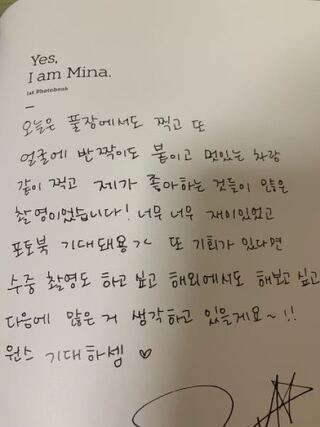 Yes,
I am Mina.
1st Photobook
오늘은 풀장에서도 찍고 또
얼굴에 반짝이도 붙이고 멋있는 차랑
같이 찍고 제가 좋아하는 것들이 많은
촬영이었습니다! 너무 너무 재미있었고
포토북 기대돼용ㄱㄱ 또 기회가 있다면
수중 촬영도 하고 싶고 해외에서도 해보고 싶고
다음에 많은 거 생각하고 있을게요~!!
원스 기대하셈 ♡